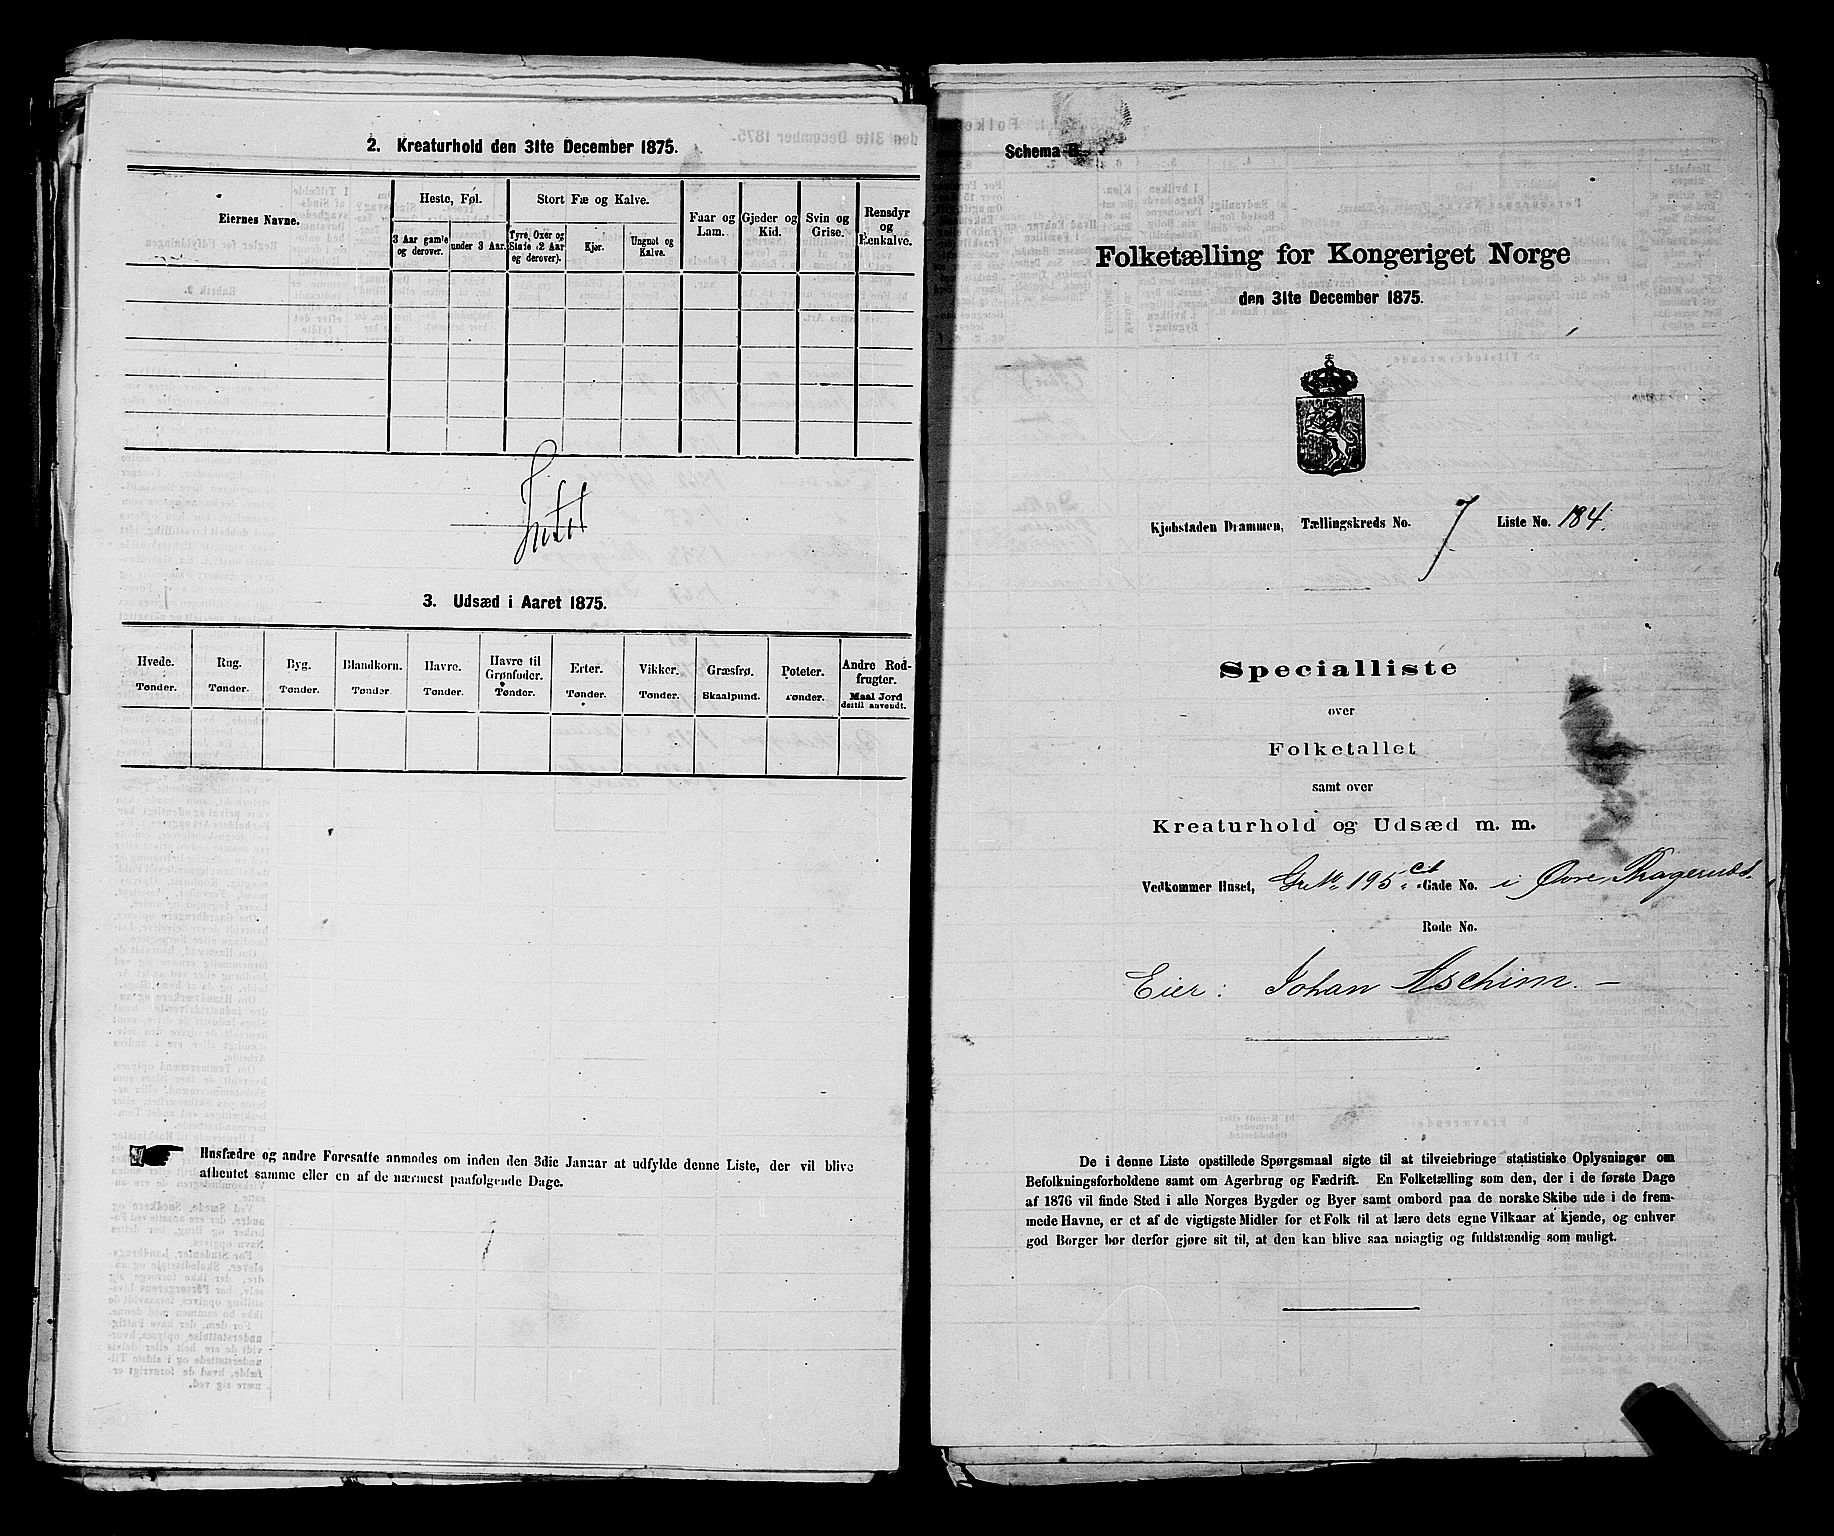 2. Kreaturhold den 31te December 1875.
Eiernes Navne.
Heste, Føl.
3 Aar gamle og derover.
under 3 Aar.
Stort Fæ og Kalve.
Tyre, Oxer og Stude i 2 Aar og derover).
Kjør.
Ungnøt og Kalve.
Faar og Lam.
Gjeder og Kid.
Svin og Grise.
Rensdyr og Renkalve.
Intet
3. Udsæd i Aaret 1875.
Hvede. Rug. Byg. Blandkorn. Havre. Havre til Grønfoder. Erter. Vikker. Græsfrø. Poteter. Andre Rodfrugter.
Tønder. Tønder. Tønder. Tønder. Tønder. Tønder. Tønder. Tønder. Skaalpund. Tønder. Maal Jord dertil anvendt.
Husfædre og andre Foresatte anmodes om inden den 3die Januar at udfylde denne Liste, der vil blive
afhentet samme eller en af de nærmest paafølgende Dage.
Schema B.
Folketælling for Kongeriget Norge
den 31te December 1875.
Kjøbstaden Drammen, Tællingskreds No. 7 Liste No. 184.
Specialliste
over
Folketallet
samt over
Kreaturhold og Udsæd m. m.
Vedkommer Huset, Gr No 195 Gade No. i Øvre Skogerud
Rode No.
Eier: Johan Aschim.
De i denne Liste opstillede Spørgsmaal sigte til at tilveiebringe statistiske Oplysninger om
Befolkningsforholdene samt om Agerbrug og Fædrift. En Folketælling som den, der i de første Dage
af 1876 vil finde Sted i alle Norges Bygder og Byer samt ombord paa de norske Skibe ude i de frem-
mede Havne, er et af de vigtigste Midler for et Folk til at lære dets egne Vilkaar at kjende, og enhver
god Borger bør derfor gjøre sit til, at den kan blive saa nøiagtig og fuldstændig som muligt.